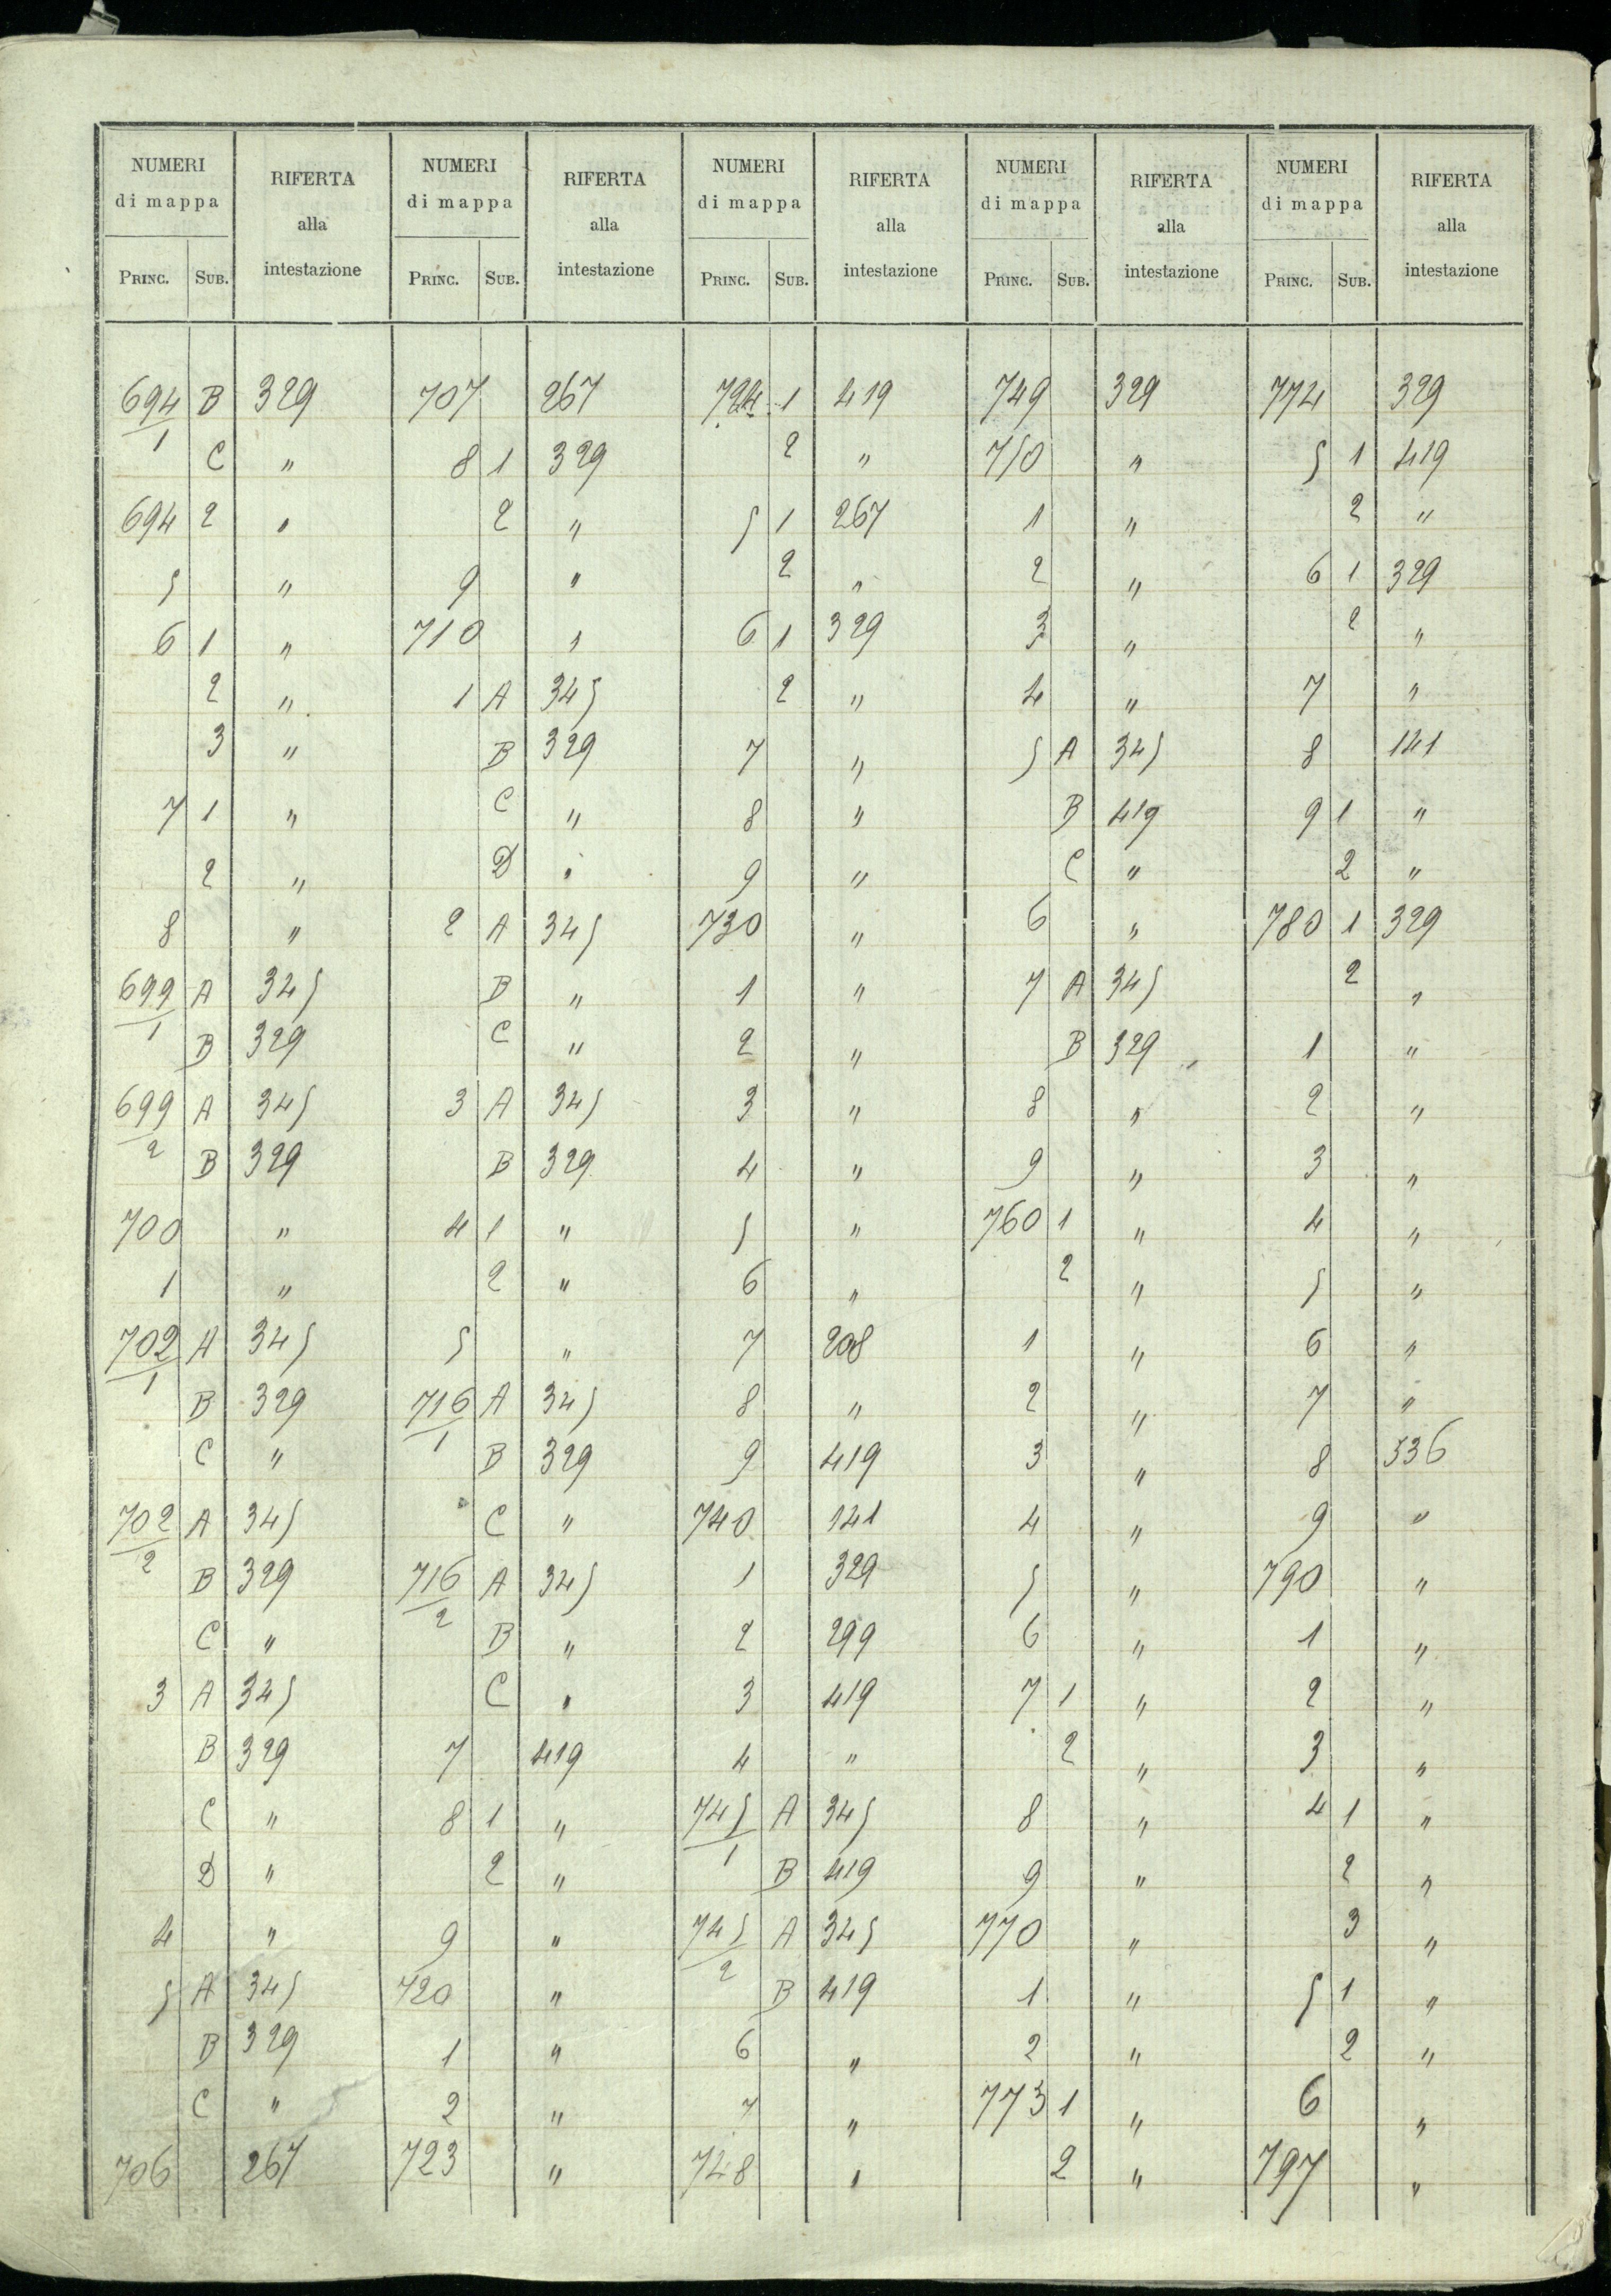 NUMERI RIFERTA NUMERI RIFERTA NUMERI RIFERTA NUMERI RIFERTA NUMERI RIFERTA
di mappa alla di mappa alla di mappa alla di mappa alla di mappa alla
PRINC. SUB. intestazione PRINC. SUB. intestazione PRINC. SUB. intestazione PRINC. SUB. intestazione PRINC. SUB. intestazione
694/1 B 329 707 267 724 1 419 749 329 774 329
C " 8 1 329 2 " 750 " 5 1 419
694 2 " 2 " 5 1 267 1 " 2 "
5 " 9 " 2 " 2 " 6 1 329
6 1 " 710 " 6 1 329 3 " 2 "
2 " 1 A 345 2 " 4 " 7 "
3 " B 329 7 " 5 A 345 8 141
7 1 " C " 8 " B 419 9 1 "
2 " D " 9 " C " 2 "
8 " 2 A 345 730 " 6 " 780 1 329
699/1 A 345 B " 1 " 7 A 345 2 "
B 329 C " 2 " B 329 1 "
699/2 A 345 3 A 345 3 " 8 " 2 "
B 329 B 329 4 " 9 " 3 "
700 " 4 1 " 5 " 760 1 " 4 "
1 " 2 " 6 " 2 " 5 "
702/1 A 345 5 " 7 208 1 " 6 "
B 329 716/1 A 345 8 " 2 " 7 "
C " B 329 9 419 3 " 8 536
702/2 A 345 C " 740 141 4 " 9 "
B 329 716/2 A 345 1 329 5 " 790 "
C " B " 2 299 6 " 1 "
3 A 345 C " 3 419 7 1 " 2 "
B 329 7 419 4 " 2 " 3 "
C " 8 1 " 745/1 A 345 8 " 4 1 "
D " 2 " B 419 9 " 2 "
4 " 9 " 745/2 A 345 770 " 3 "
5 A 345 720 " B 419 1 " 5 1 "
B 329 1 " 6 " 2 " 2 "
C " 2 " 7 " 773 1 " 6 "
706 267 723 " 748 " 2 " 797 "